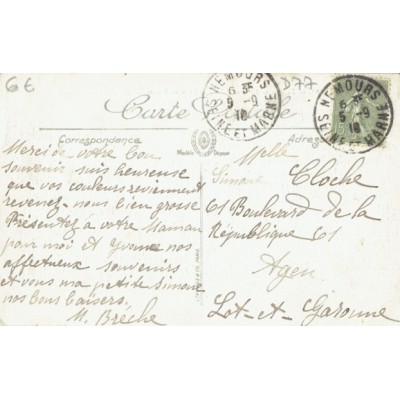 6€
D77
NEMOURS
6 35
5-9
18
SEINE ET MARNE
NEMOURS
6 35
5-9
18
SEINE ET MARNE
Carte Postale
Correspondance
Adresse
Modèle Déposé
Merci de votre bon
souvenir suis heureuse
que vos couleurs reviennent
revenez-nous bien grosse
Présentez à votre Maman
pour moi et Yvonne nos
affectueux souvenirs
et vous ma petite Simone
nos bons baisers.
M. Brèche
Mlle
Simone Cloche
61 Boulevard de la
République 61
Agen
Lot-et-Garonne